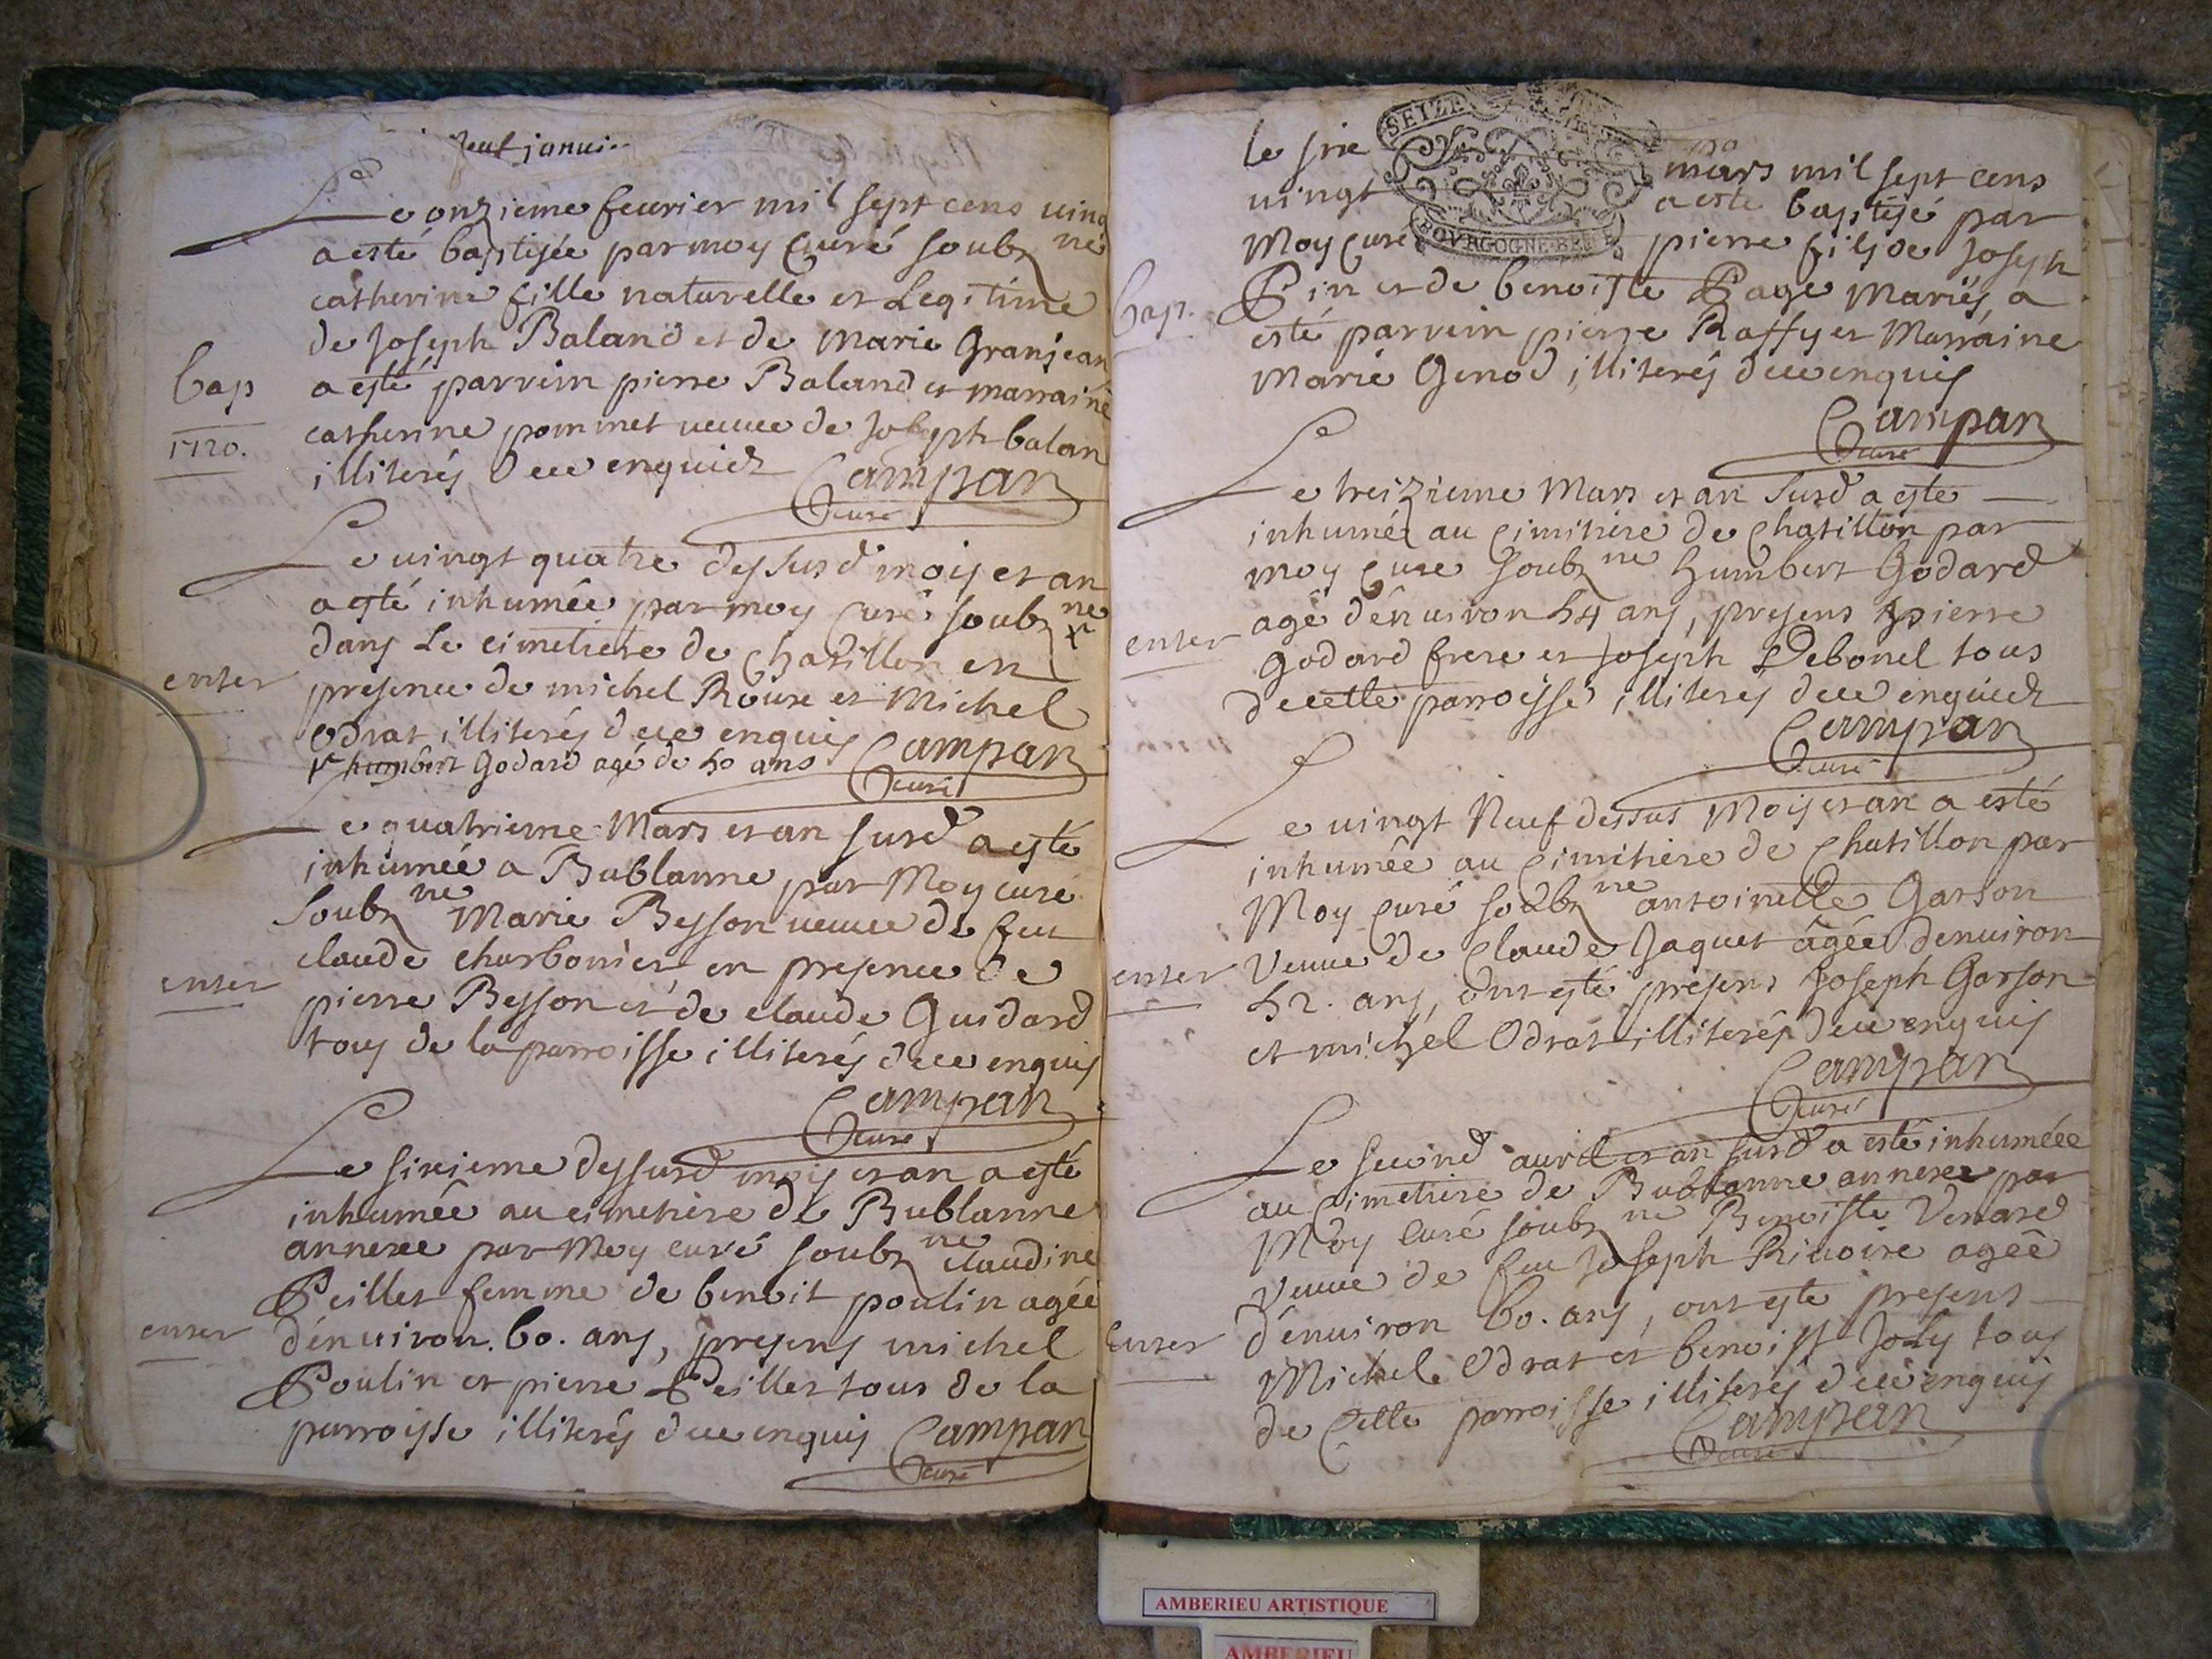 neuf janvi
Le onzieme feurier mil sept cens ving
a esté baptisée par moy Curé soubz ne
catherine fille naturelle et Legitime
de Joseph Baland et de Marie Granjean
Bap
a esté parrein pierre Baland et marraine
1720.
catherine pommet veuue de Joseph balan
illiterés de ce enquiez Campan
Curé
Le uingt quatre dy susd mois et an
a esté inhumée par moy curé soubz ne
dans Le cimetiere de Chatillon en
enter
presence de michel Roure et Michel
Odrat illiterés de ce enquis Campan
humbert Godard agé de 50 ans
Curé
Le quatrieme Mars et an susd a esté
inhumée a Bublanne par Moy curé
soubz ne Marie Besson ueuue de feu
claude charbonier en presence de
enter
pierre Besson et de claude Guidard
tous de la parroisse illiterés de ce enquis
Campan
Curé
Le sixieme dy susd mois et an a esté
inhumée au cimetiere de Bublanne
annexee par Moy curé soubz ne claudine
Peillet femme de benoit poulin agée
enter
d'énuiron. 60. ans, presens michel
Poulin et pierre Peillet tous de la
parroisse illiterés de ce enquis Campan
Curé
SEIZE
BOVRGOGNE BRE
le sixie mars mil sept cens
uingt a esté baptisé par
Moy Curé pierre fils de Joseph
Bap.
Pin et de benoiste Page mariés, a
esté parrein pierre Raffy et Marraine
Marie Genod illiterés de ce enquis
Campan
Curé
Le treizieme Mars et an susd a esté
inhumé au Cimitiere de Chatillon par
moy Curé soubz ne humbert Godard
enter
agé d'énuiron 54 ans, presens pierre
Godard frere et Joseph Debonel tous
de cette parroisse illiterés de ce enquiez
Campan
Curé
Le uingt Neuf dessus Mois et an a esté
inhumée au Cimitiere de Chatillon par
Moy Curé soubz ne antoinette Garson
enter
Veuue de Claude Jaquet âgée denuiron
52. ans, ont esté presens Joseph Garson
et michel Odrat illiterés de ce enquis
Campan
Curé
Le second auril et an susd a esté inhumée
au Cimetiere de Bublanne annexee par
Moy Curé soubz ne Benoiste Venard
Veuue de feu Joseph Riuoire agée
enter
d'énuiron 60. ans, ont esté presens
Michel Odrat et benoist Joly tous
de Cette parroisse illiterés de ce enquis
Campan
Curé
AMBERIEU ARTISTIQUE
AMBERIEU